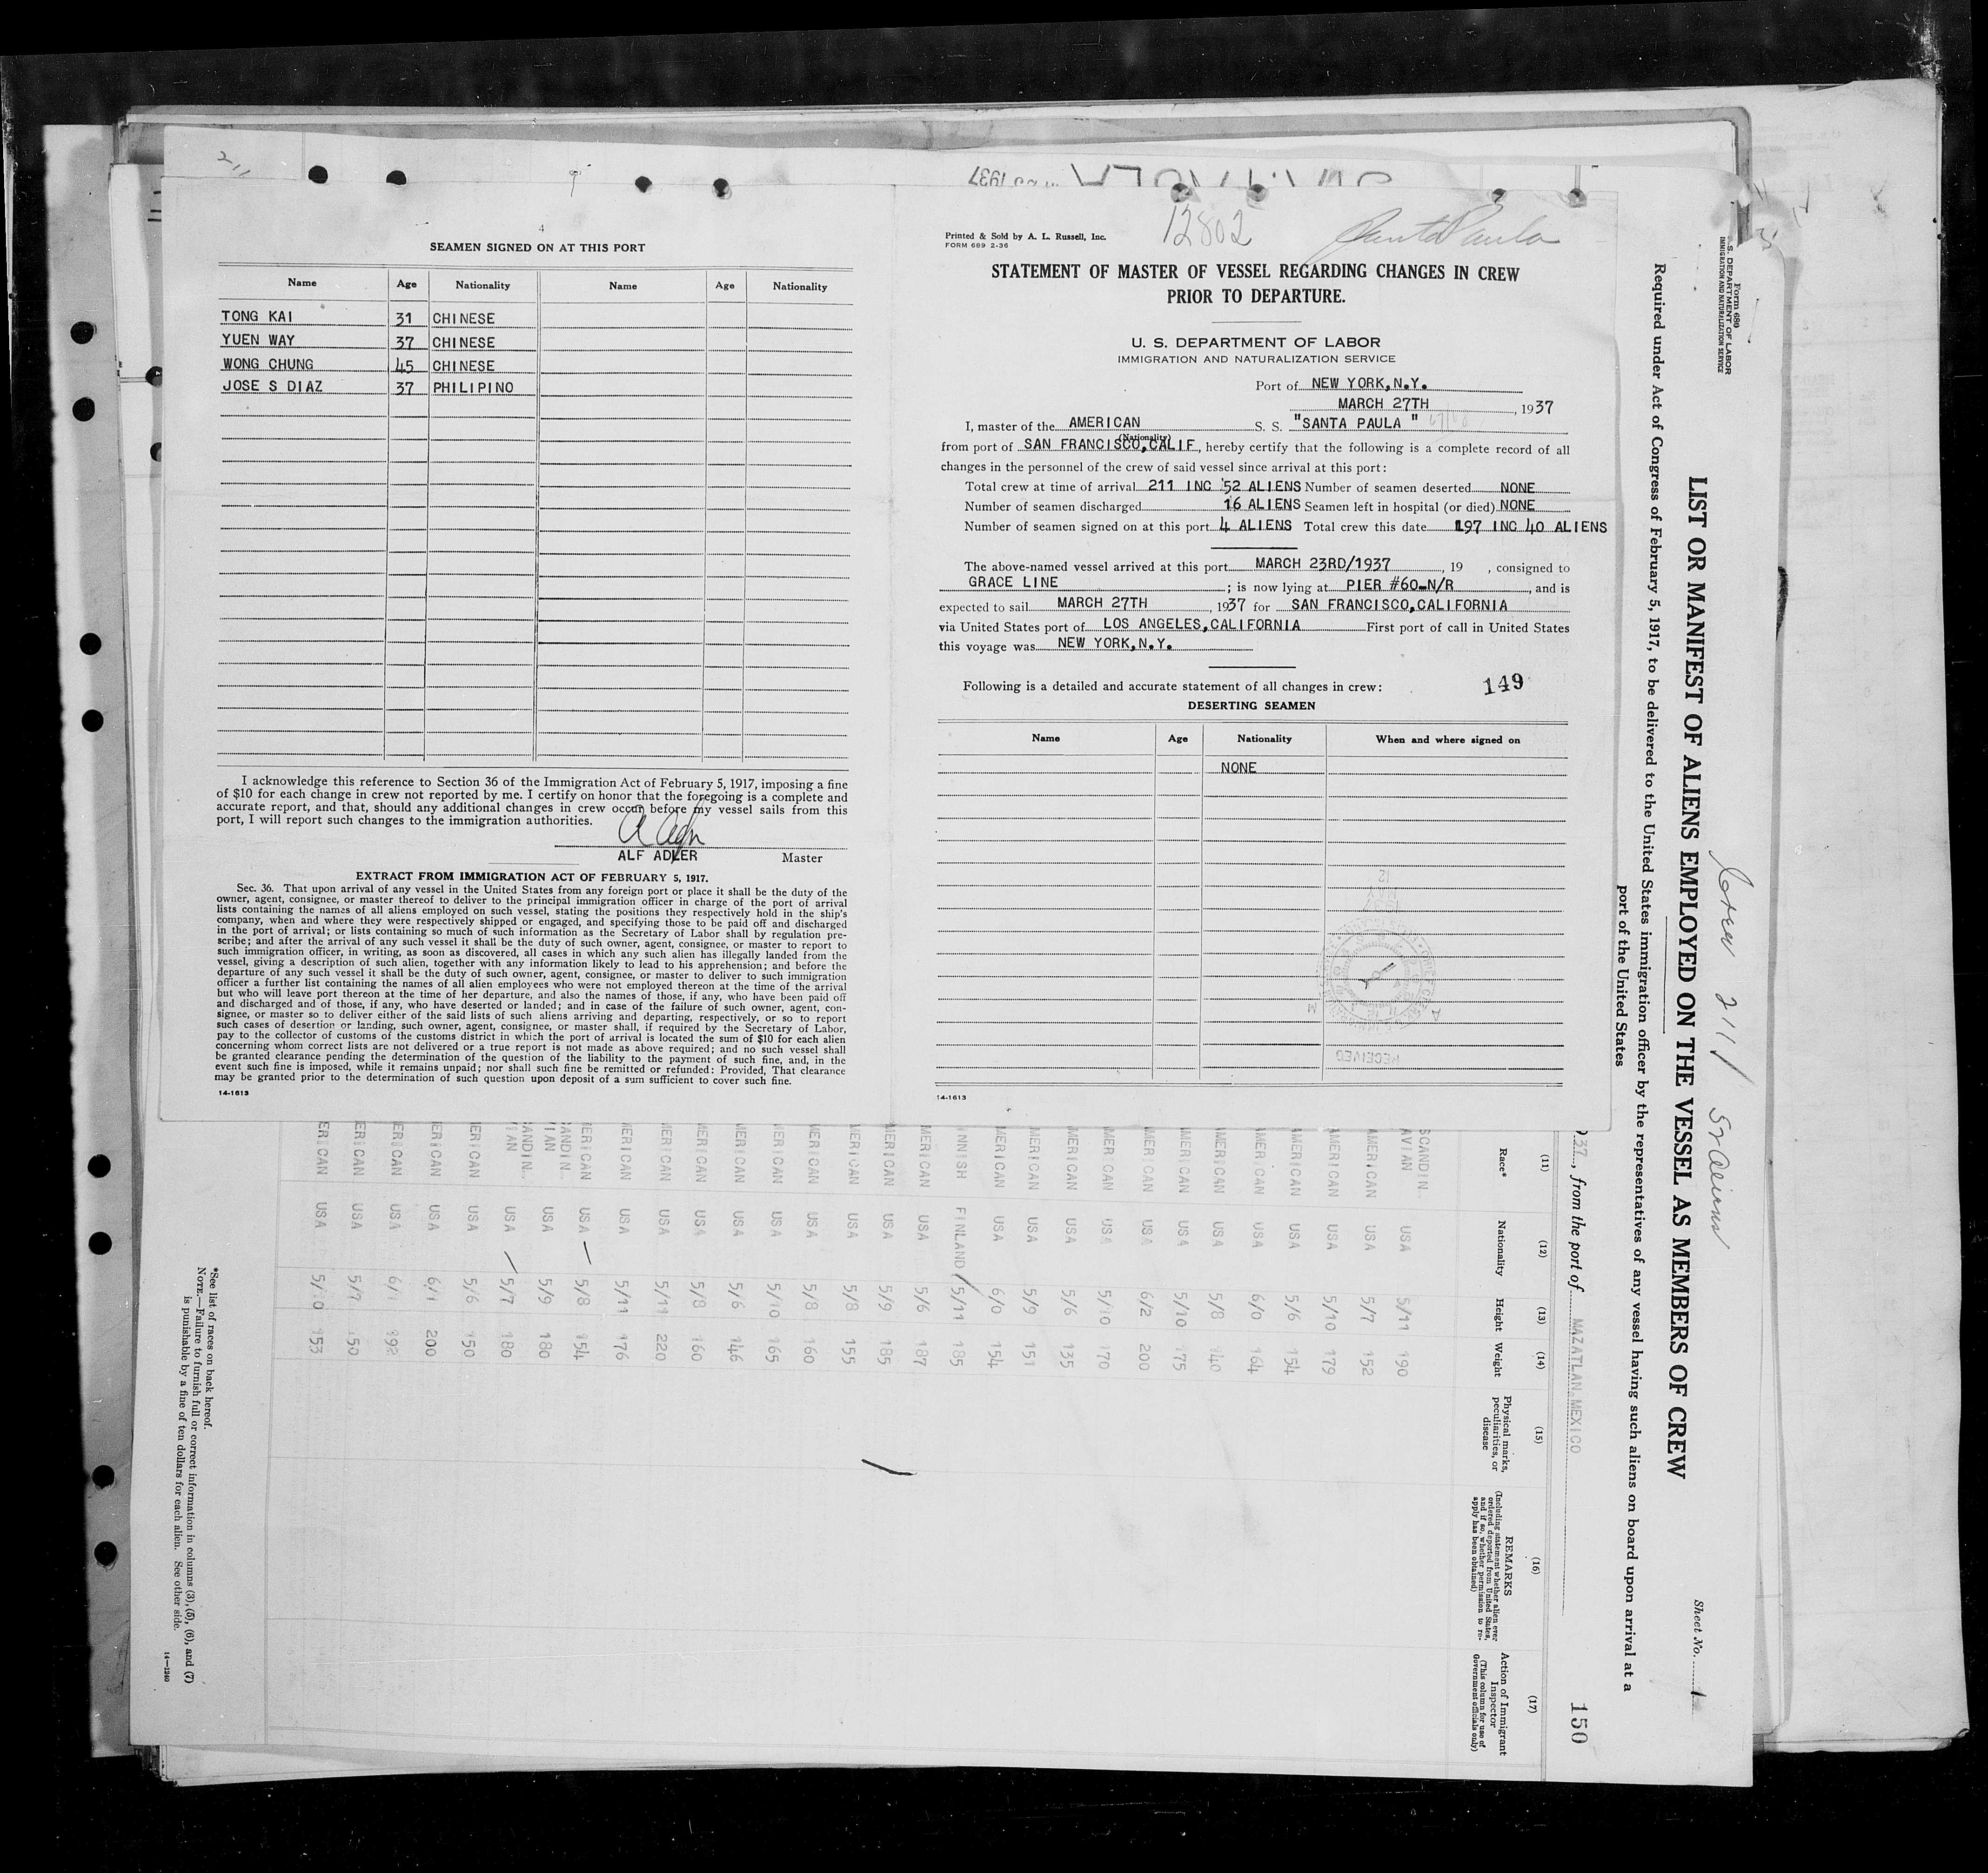 4
SEAMEN SIGNED ON AT THIS PORT
Name Age Nationality Name Age Nationality
TONG KAI 31 CHINESE
YUEN WAY 37 CHINESE
WONG CHUNG 45 CHINESE
JOSE S DIAZ 37 PHILIPINO
I acknowledge this reference to Section 36 of the Immigration Act of February 5, 1917, imposing a fine
of $10 for each change in crew not reported by me. I certify on honor that the foregoing is a complete and
accurate report, and that, should any additional changes in crew occur before my vessel sails from this
port, I will report such changes to the immigration authorities.
ALF ADLER Master
EXTRACT FROM IMMIGRATION ACT OF FEBRUARY 5, 1917.
Sec. 36. That upon arrival of any vessel in the United States from any foreign port or place it shall be the duty of the
owner, agent, consignee, or master thereof to deliver to the principal immigration officer in charge of the port of arrival
lists containing the names of all aliens employed on such vessel, stating the positions they respectively hold in the ship's
company, when and where they were respectively shipped or engaged, and specifying those to be paid off and discharged
in the port of arrival; or lists containing so much of such information as the Secretary of Labor shall by regulation pre-
scribe; and after the arrival of any such vessel it shall be the duty of such owner, agent, consignee, or master to report to
such immigration officer, in writing, as soon as discovered, all cases in which any such alien has illegally landed from the
vessel, giving a description of such alien, together with any information likely to lead to his apprehension; and before the
departure of any such vessel it shall be the duty of such owner, agent, consignee, or master to deliver to such immigration
officer a further list containing the names of all alien employees who were not employed thereon at the time of the arrival
but who will leave port thereon at the time of her departure, and also the names of those, if any, who have been paid off
and discharged and of those, if any, who have deserted or landed; and in case of the failure of such owner, agent, con-
signee, or master so to deliver either of the said lists of such aliens arriving and departing, respectively, or so to report
such cases of desertion or landing, such owner, agent, consignee, or master shall, if required by the Secretary of Labor,
pay to the collector of customs of the customs district in which the port of arrival is located the sum of $10 for each alien
concerning whom correct lists are not delivered or a true report is not made as above required; and no such vessel shall
be granted clearance pending the determination of the question of the liability to the payment of such fine, and, in the
event such fine is imposed, while it remains unpaid; nor shall such fine be remitted or refunded: Provided, That clearance
may be granted prior to the determination of such question upon deposit of a sum sufficient to cover such fine.
14-1613
12802 Santa Paula
Printed & Sold by A. L. Russell, Inc.
FORM 689 2-36
STATEMENT OF MASTER OF VESSEL REGARDING CHANGES IN CREW
PRIOR TO DEPARTURE.
U. S. DEPARTMENT OF LABOR
IMMIGRATION AND NATURALIZATION SERVICE
Port of NEW YORK,N.Y.
MARCH 27TH, 1937
I, master of the AMERICAN S. S. "SANTA PAULA "
(Nationality)
from port of SAN FRANCISCO,CALIF, hereby certify that the following is a complete record of all
changes in the personnel of the crew of said vessel since arrival at this port:
Total crew at time of arrival 211 INC 52 ALIENS Number of seamen deserted NONE
Number of seamen discharged 16 ALIENS Seamen left in hospital (or died) NONE
Number of seamen signed on at this port 4 ALIENS Total crew this date 197 INC 40 ALIENS
The above-named vessel arrived at this port MARCH 23RD/1937, 19 , consigned to
GRACE LINE; is now lying at PIER #60-N/R, and is
expected to sail MARCH 27TH, 1937 for SAN FRANCISCO,CALIFORNIA
via United States port of LOS ANGELES,CALIFORNIA First port of call in United States
this voyage was NEW YORK,N.Y.
Following is a detailed and accurate statement of all changes in crew: 149
DESERTING SEAMEN
Name Age Nationality When and where signed on
NONE
RECEIVED
14-1613
Form 680
U.S. DEPARTMENT OF LABOR
IMMIGRATION AND NATURALIZATION SERVICE
Crew 211 52 aliens
LIST OR MANIFEST OF ALIENS EMPLOYED ON THE VESSEL AS MEMBERS OF CREW
Sheet No. 1
Required under Act of Congress of February 5, 1917, to be delivered to the United States immigration officer by the representatives of any vessel having such aliens on board upon arrival at a
port of the United States
37, from the port of MAZATLAN.MEXICO
150
(11) (12) (13) (14) (15) (16) (17)
Race* Nationality Height Weight Physical marks, peculiarities, or disease REMARKS (Including statement whether alien ever ordered deported from United States, and if so, whether permission to re-apply has been obtained) Action of Immigrant Inspector (This column for use of Government officials only)
SCANDIN.
AVIAN USA 5/11 190
AMERICAN USA 5/7 152
AMERICAN USA 5/10 179
AMERICAN USA 5/6 154
AMERICAN USA 6/0 164
AMERICAN USA 5/8 140
AMERICAN USA 5/10 175
AMERICAN USA 6/2 200
AMERICAN USA 5/10 170
MERICAN USA 5/6 135
MERICAN USA 5/9 151
MERICAN USA 6/0 154
INNISH FINLAND 5/11 185
MERICAN USA 5/6 187
MERICAN USA 5/9 185
MERICAN USA 5/8 155
MERICAN USA 5/8 160
MERICAN USA 5/10 165
MERICAN USA 5/6 146
MERICAN USA 5/8 160
MERICAN USA 5/11 220
MERICAN USA 5/11 176
MERICAN USA 5/8 154
CANDIN.
IAN USA 5/9 180
CANDIN.
IAN USA 5/7 180
ERICAN USA 5/6 150
ERICAN USA 6/1 200
ERICAN USA 6/1 192
ERICAN USA 5/7 150
ERICAN USA 5/10 153
*See list of races on back hereof.
NOTE.—Failure to furnish full or correct information in columns (3), (5), (6), and (7)
is punishable by a fine of ten dollars for each alien. See other side.
14—1240